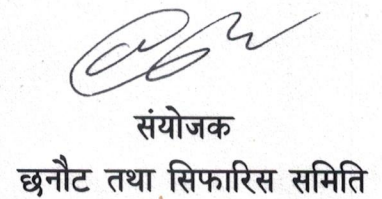 संयोजक
छनौट तथा सिफारिस समिति